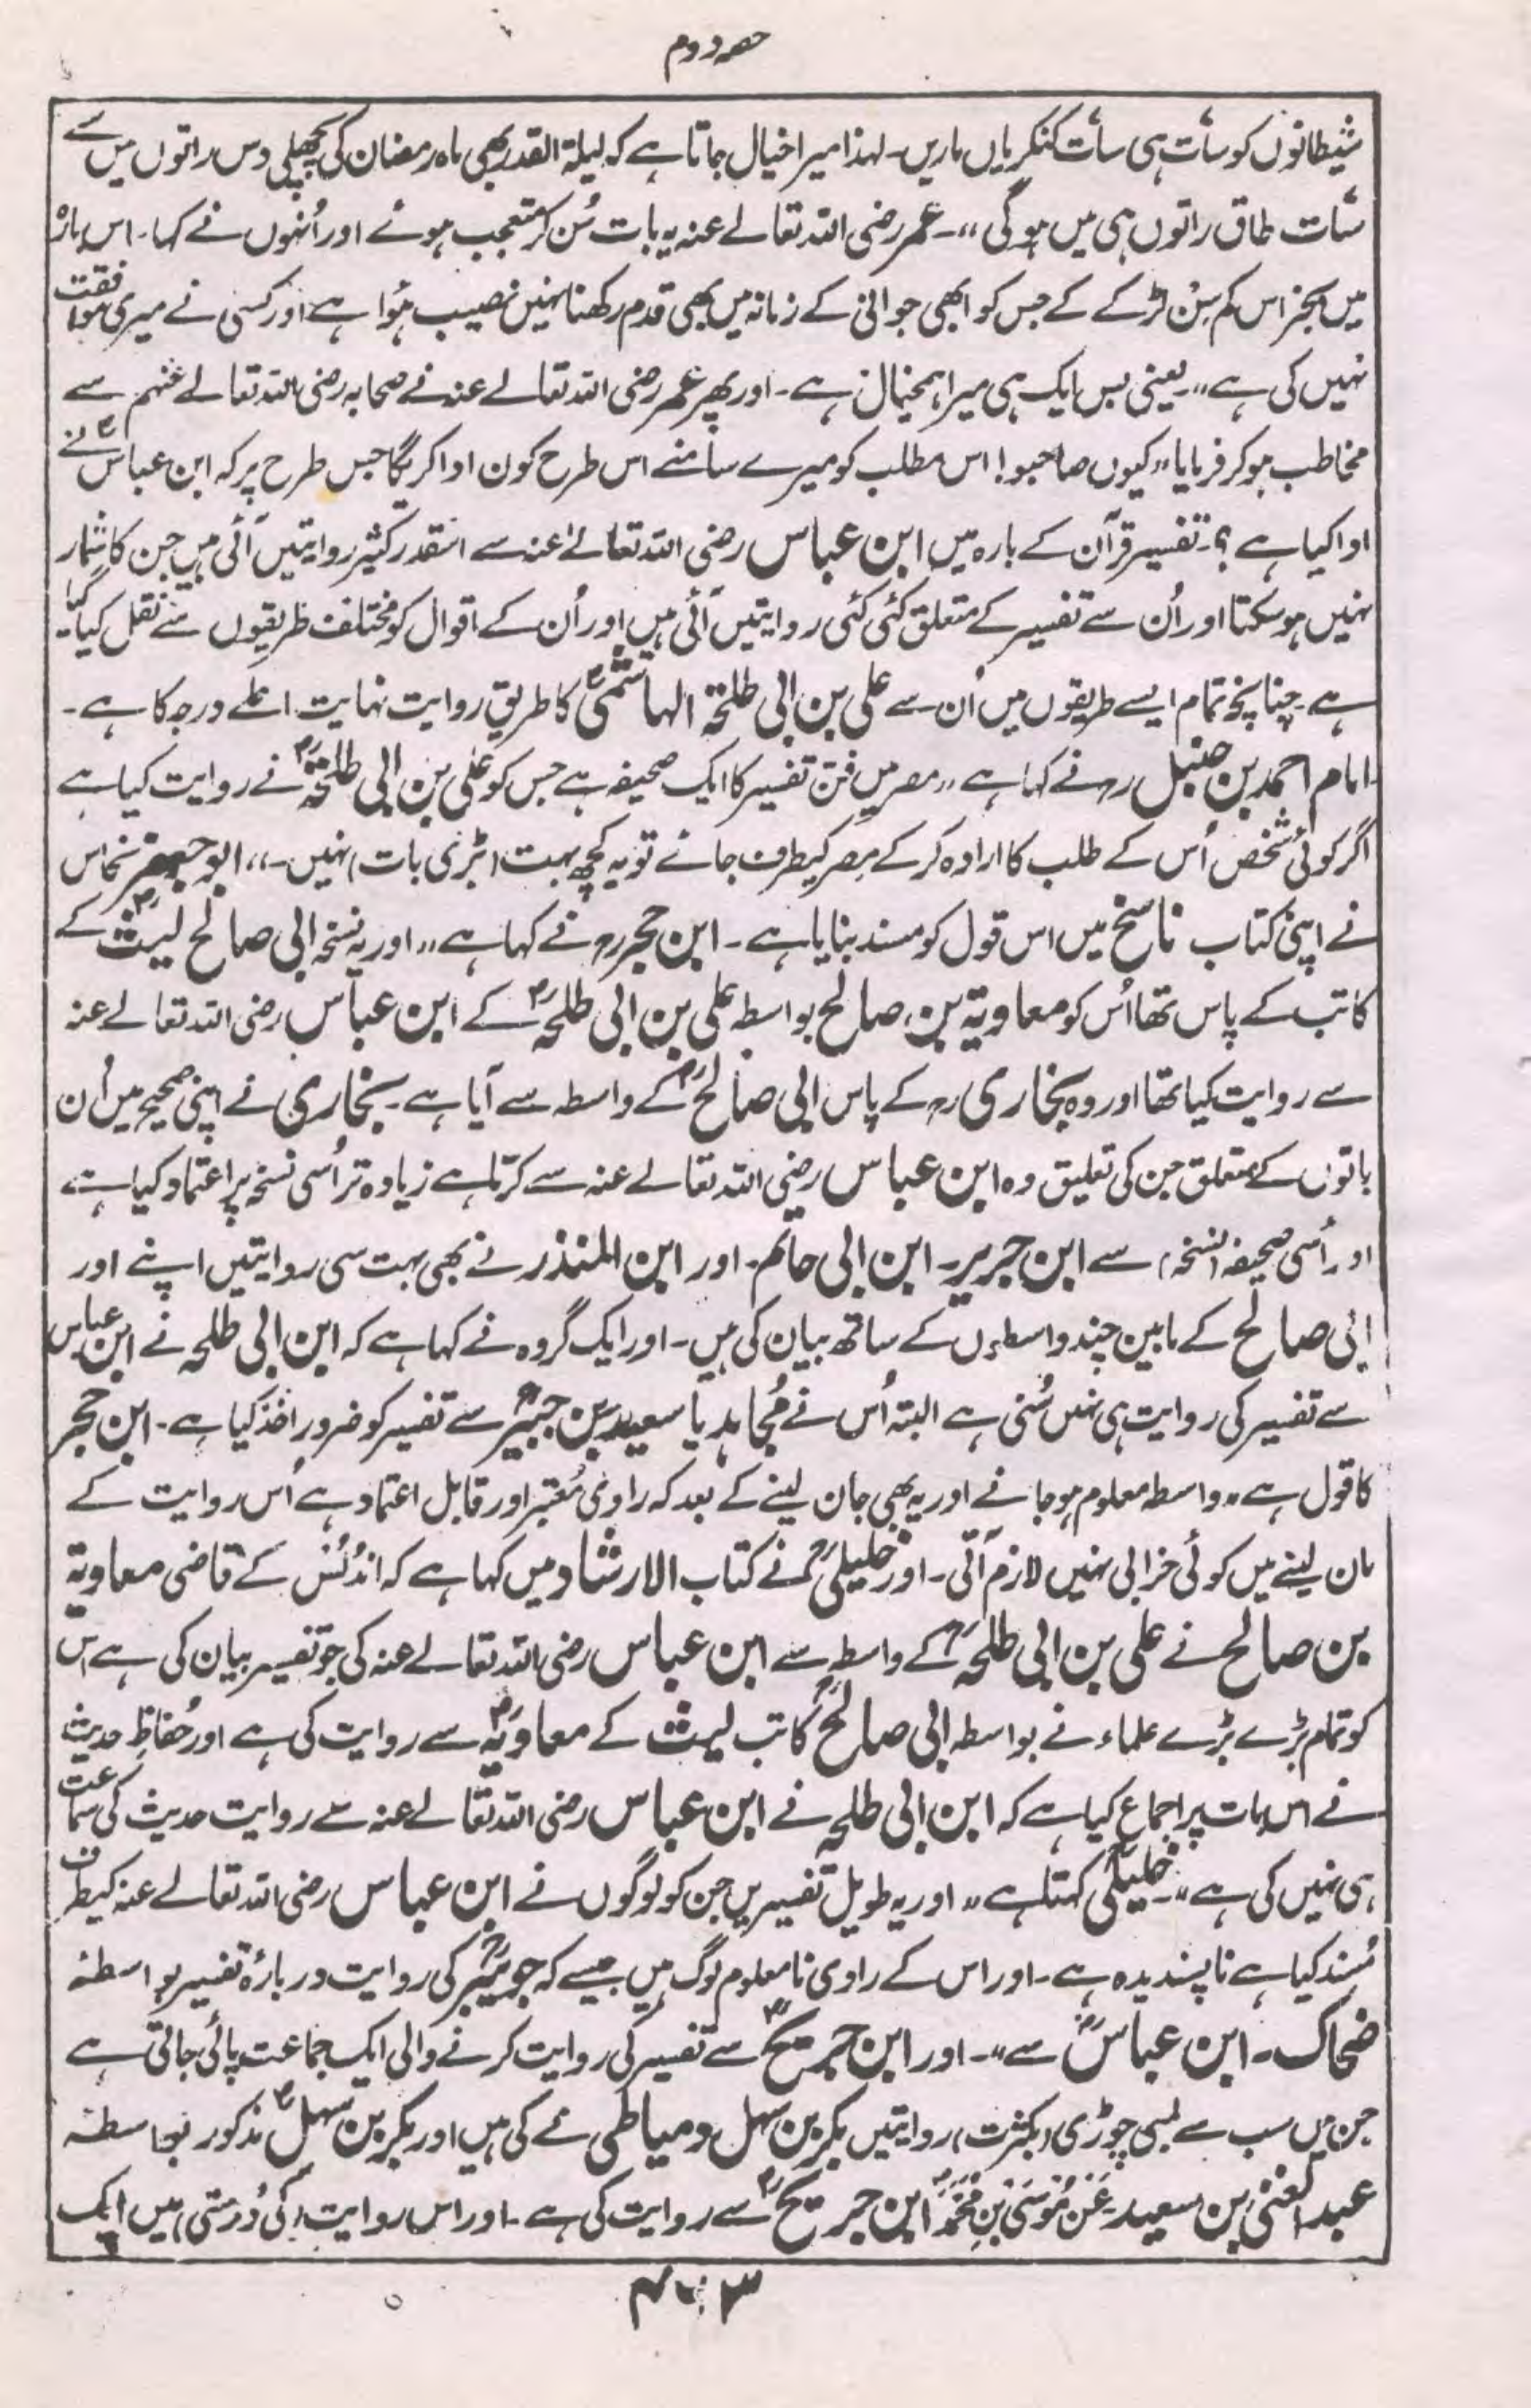 حصہ دوم
شیطانوں کو سات ہی سات کنکریاں ماریں۔ لہذا میرا خیال جاتا ہے کہ لیلۃ القدر بھی ماہ رمضان کی پچھلی دس راتوں میں سے
سات طاق راتوں ہی میں ہوگی،،۔ عمر رضی اللہ تعالےٰ عنہ یہ بات سُن کر متعجب ہوئے اور اُنہوں نے کہا۔ اس بارہ
میں بجز اس کم سِن لڑکے کے جس کو ابھی جوانی کے زمانہ میں بھی قدم رکھنا نہیں نصیب ہؤا ہے اور کسی نے میری موافقت
نہیں کی ہے،،۔ یعنی بس ایک ہی میرا ہمخیال ہے۔ اور پھر عمر رضی اللہ تعالےٰ عنہ نے صحابہ رضی اللہ تعالےٰ عنہم سے
مخاطب ہو کر فرمایا،،کیوں صاحبو! اس مطلب کو میرے سامنے اس طرح کون ادا کریگا جس طرح پر کہ ابن عباسؓ نے
ادا کیا ہے ؟۔ تفسیر قرآن کے بارہ میں ابن عباس رضی اللہ تعالےٰ عنہ سے اسقدر کثیر روایتیں آئی ہیں جن کا شمار
نہیں ہو سکتا اور اُن سے تفسیر کے متعلق کئی کئی روایتیں آئی ہیں اور اُن کے اقوال کو مختلف طریقوں سے نقل کیا گیا
ہے۔ چنانچہ تمام ایسے طریقوں میں اُن سے علی بن ابی طلحۃ الہاشمیؒ کا طریق روایت نہایت اعلےٰ درجہ کا ہے۔
امام احمد بن حنبل رح نے کہا ہے ،،مصر میں فن تفسیر کا ایک صحیفہ ہے جس کو علی بن ابی طلحۃؒ نے روایت کیا ہے
اگر کوئی شخص اُس کے طلب کا ارادہ کر کے مصر کیطرف جائے تو یہ کچھ بہت (بڑی بات) نہیں۔،، ابو جعفر نحاس
نے اپنی کتاب ناسخ میں اس قول کو مسند بنایا ہے۔ ابن حجر رح نے کہا ہے ،،اور یہ نسخہ ابی صالح لیثؒ کے
کاتب کے پاس تھا اُس کو معاویۃ بن صالح بواسطہ علی بن ابی طلحہؒ کے ابن عباس رضی اللہ تعالےٰ عنہ
سے روایت کیا تھا اور وہ بخاری رح کے پاس ابی صالحؒ کے واسطہ سے آیا ہے۔ بخاری نے اپنی صحیح میں اُن
باتوں کے متعلق جن کی تعلیق وہ ابن عباس رضی اللہ تعالےٰ عنہ سے کرتا ہے زیادہ تر اُسی نسخہ پر اعتماد کیا ہے
اور اُسی صحیفہ (نسخہ) سے ابن جریر۔ ابن ابی حاتم۔ اور ابن المنذر نے بھی بہت سی روایتیں اپنے اور
ابی صالح کے مابین چند واسطوں کے ساتھ بیان کی ہیں۔ اور ایک گروہ نے کہا ہے کہ ابن ابی طلحہ نے ابن عباس
سے تفسیر کی روایت ہی نہیں سُنی ہے البتہ اُس نے مُجاہد یا سعید بن جبیرؒ سے تفسیر کو ضرور اخذ کیا ہے۔ ابن حجر
کا قول ہے ،،واسطہ معلوم ہو جانے اور یہ بھی جان لینے کے بعد کہ راوی مُعتبر اور قابل اعتماد ہے اُس روایت کے
مان لینے میں کوئی خرابی نہیں لازم آتی۔ اور خلیلیؒ نے کتاب الارشاد میں کہا ہے کہ اندُلُس کے قاضی معاویۃ
بن صالح نے علی بن ابی طلحہؒ کے واسطہ سے ابن عباس رضی اللہ تعالےٰ عنہ کی جو تفسیر بیان کی ہے اس
کو تمام بڑے بڑے علماء نے بواسطہ ابی صالحؒ کاتب لیث کے معاویۃؒ سے روایت کی ہے اور حُفاظِ حدیث
نے اس بات پر اجماع کیا ہے کہ ابن ابی طلحہ نے ابن عباس رضی اللہ تعالےٰ عنہ سے روایت حدیث کی سماعت
ہی نہیں کی ہے،،۔ خلیلیؒ کہتا ہے ،،اور یہ طویل تفسیریں جن کو لوگوں نے ابن عباس رضی اللہ تعالےٰ عنہ کیطرف
مُسند کیا ہے ناپسندیدہ ہے۔ اور اس کے راوی نامعلوم لوگ ہیں جیسے کہ جویبرؒ کی روایت دربارۂ تفسیر بواسطۂ
ضحاک۔ ابن عباسؓ سے،،۔ اور ابن جریجؒ سے تفسیر کی روایت کرنے والی ایک جماعت پائی جاتی ہے
جن میں سب سے لمبی چوڑی (بکثرت) روایتیں بکر بن سہل دمیاطی نے کی ہیں اور بکر بن سہلؒ مذکور بواسطۂ
عبد الغنی بن سعید۔ عَنْ مُوسَیٰ بنِ مُحَمَّد ابن جریجؒ سے روایت کی ہے۔ اور اس روایت (کی دُرستی) میں ایک